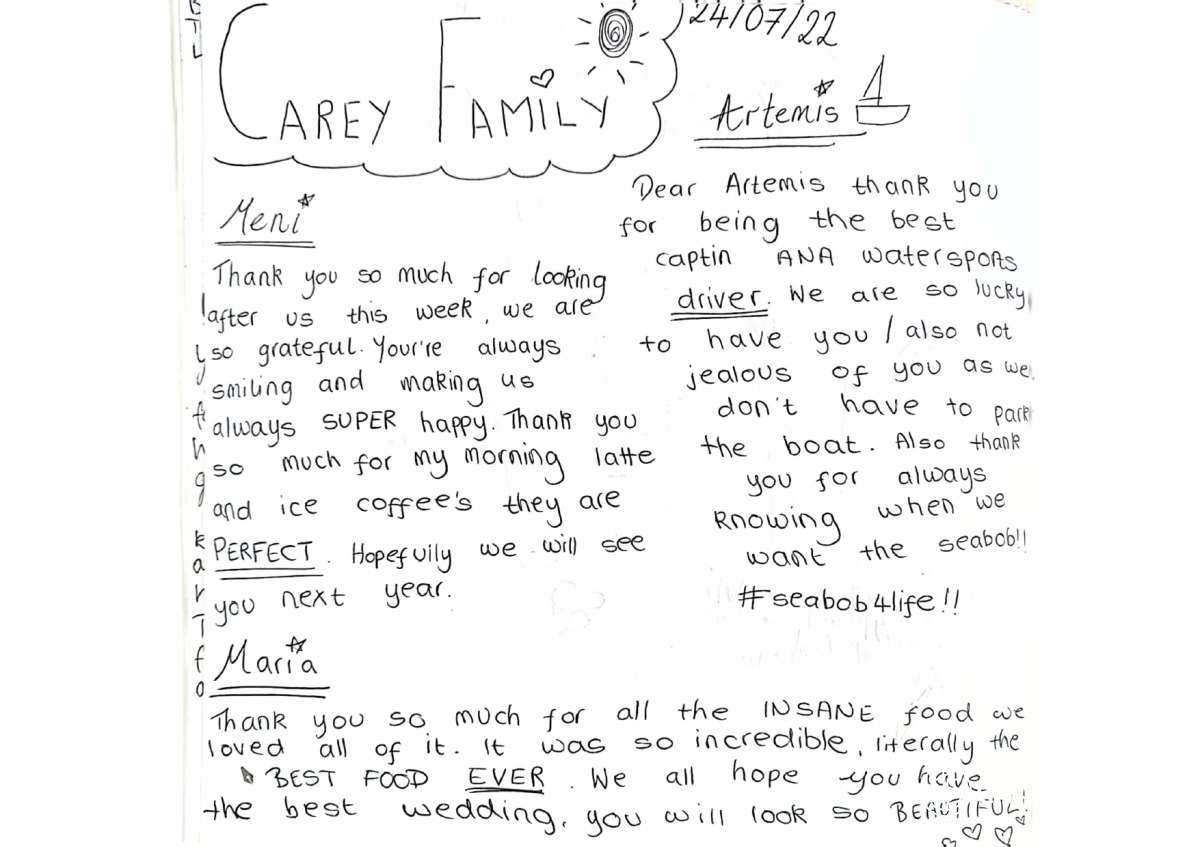 CAREY FAMILY
24/07/22
Artemis
Dear Artemis thank you
for being the best
captin ANA watersports
driver. We are so lucky
to have you / also not
jealous of you as we
don't have to park
the boat. Also thank
you for always
knowing when we
want the seabob!!
#seabob4life!!
Meni
Thank you so much for looking
after us this week, we are
so grateful. Your're always
smiling and making us
always SUPER happy. Thank you
so much for my morning latte
and ice coffee's they are
PERFECT. Hopefully we will see
you next year.
Maria
Thank you so much for all the INSANE food we
loved all of it. It was so incredible, literally the
BEST FOOD EVER. We all hope you have
the best wedding, you will look so BEAUTIFUL!